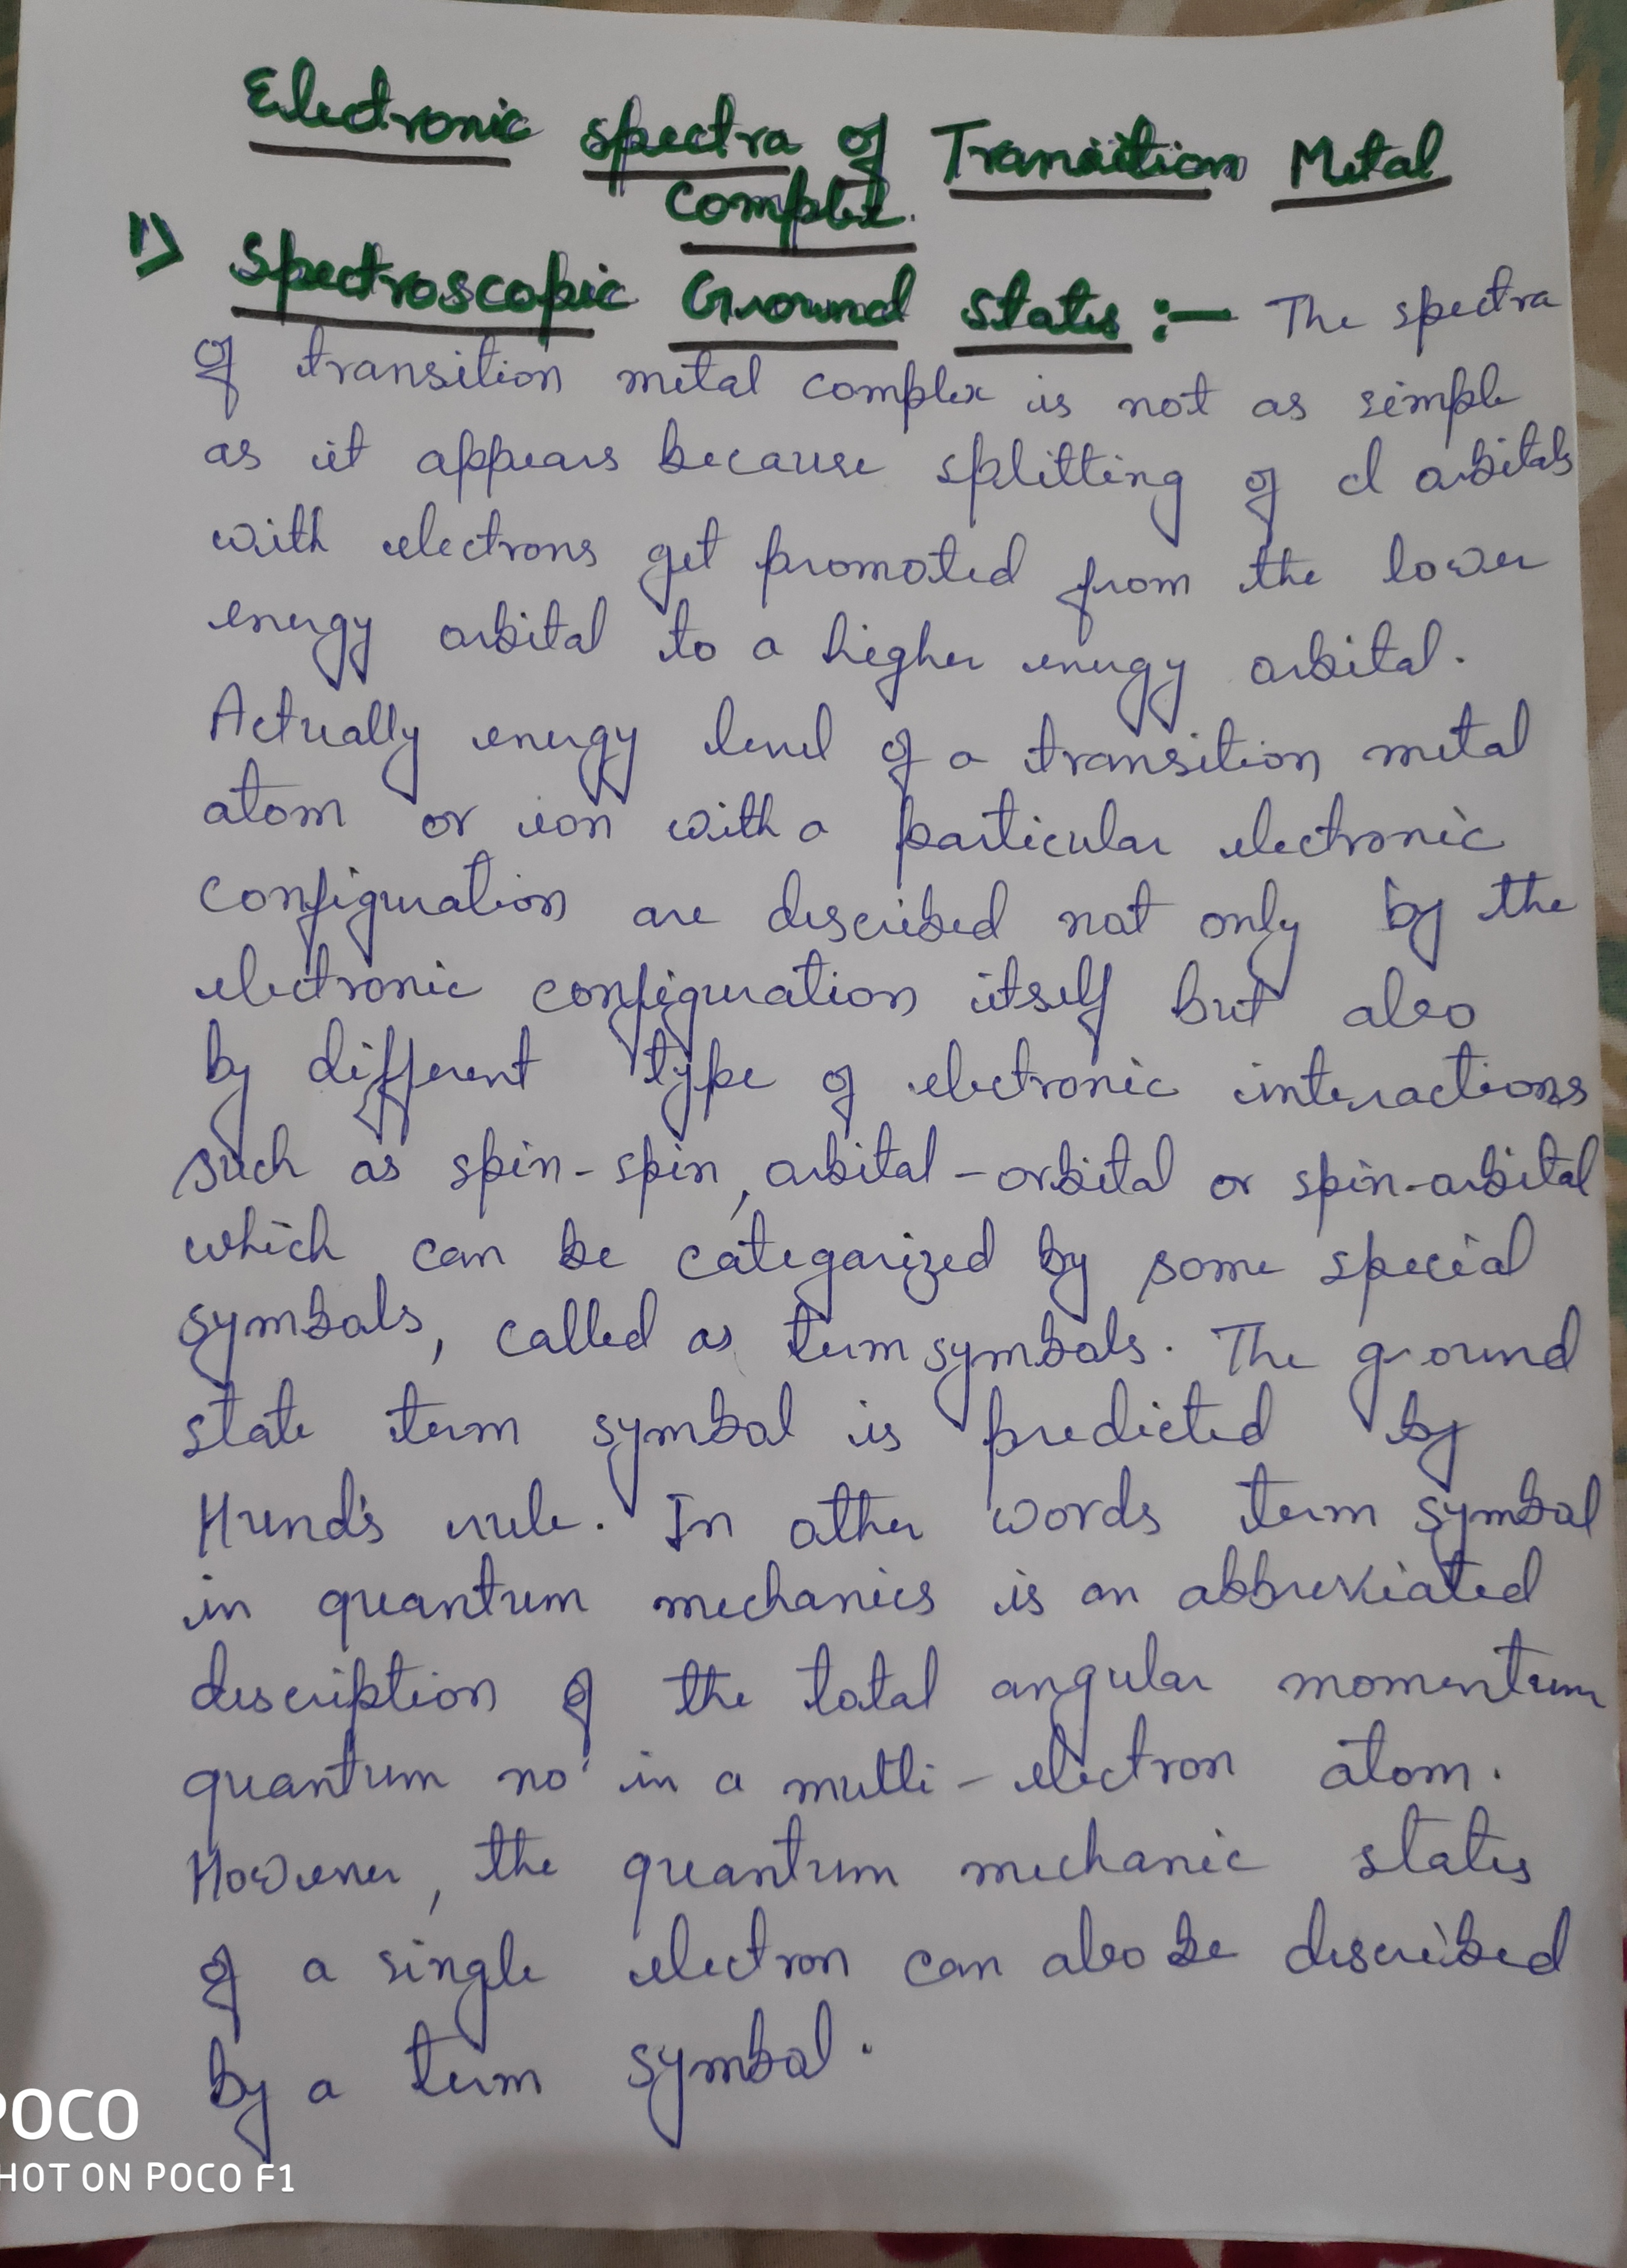 Electronic spectra of Transition Metal
Complex.
1) Spectroscopic Ground States :- The spectra
of transition metal complex is not as simple
as it appears because splitting of d orbitals
with electrons get promoted from the lower
energy orbital to a higher energy orbital.
Actually energy level of a transition metal
atom or ion with a particular electronic
configuration are described not only by the
electronic configuration itself but also
by different type of electronic interactions
such as spin-spin, orbital-orbital or spin-orbital
which can be categorized by some special
symbols, called as term symbols. The ground
state term symbol is predicted by
Hund's rule. In other words term symbol
in quantum mechanics is an abbreviated
description of the total angular momentum
quantum no. in a multi-electron atom.
However, the quantum mechanic states
of a single electron can also be described
by a term symbol.
POCO
HOT ON POCO F1